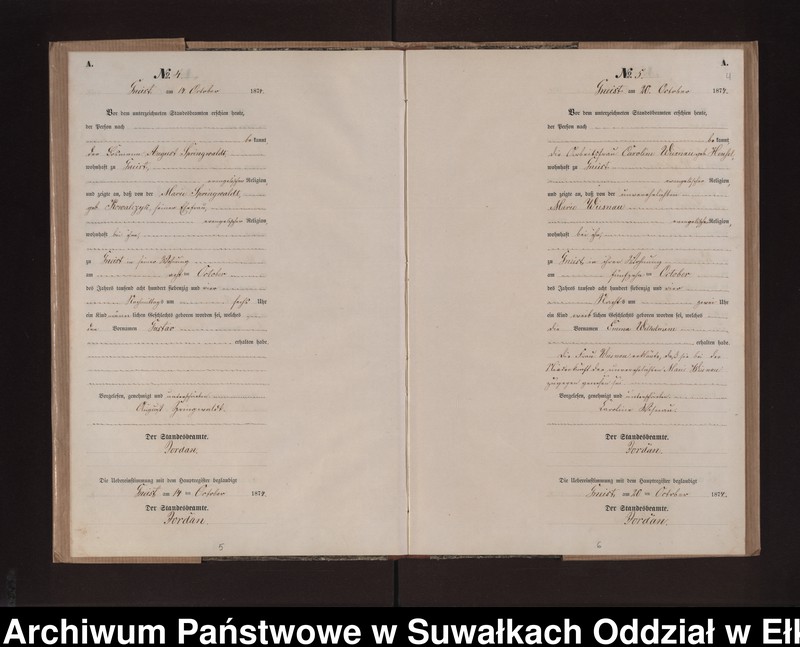 A.
№ 4
Gneist am 14 October 1874.
Vor dem unterzeichneten Standesbeamten erschien heute,
der Person nach
bekannt,
der August Springwaldt,
wohnhaft zu Gneist,
evangelischer Religion,
und zeigte an, daß von der Marie Springwaldt,
geb. Kowalzyk, seiner Ehefrau,
evangelischer Religion,
wohnhaft bei ihm,
zu Gneist in seiner Wohnung
am October
des Jahres tausend acht hundert siebenzig und vier
Nachmittags um sechs Uhr
ein Kind männlichen Geschlechts geboren worden sei, welches
den Vornamen Gustav
erhalten habe.
Vorgelesen, genehmigt und unterschrieben
August Springwaldt.
Der Standesbeamte.
Jordan.
Die Uebereinstimmung mit dem Hauptregister beglaubigt
Gneist am 14 ten October 1874.
Der Standesbeamte.
Jordan.
5
A.
4
№ 5
Gneist am 20. October 1874.
Vor dem unterzeichneten Standesbeamten erschien heute,
der Person nach
bekannt,
die Arbeitsfrau Caroline Wusnau geb.
wohnhaft zu Gneist
evangelischer Religion,
und zeigte an, daß von der unverehelichten
Marie Wusnau
evangelischer Religion,
wohnhaft bei ihr,
zu Gneist in ihrer Wohnung
am fünfzehn ten October
des Jahres tausend acht hundert siebenzig und vier
Nachts um zwei Uhr
ein Kind weiblichen Geschlechts geboren worden sei, welches
die Vornamen Emma Wilhelmine
erhalten habe.
Die Frau Wusnau erklärte, daß sie bei der
Niederkunft der unverehelichten Marie Wusnau
zugegen gewesen sei
Vorgelesen, genehmigt und unterschrieben
Caroline
Der Standesbeamte.
Jordan.
Die Uebereinstimmung mit dem Hauptregister beglaubigt
Gneist, am 20 ten October 1874.
Der Standesbeamte.
Jordan.
6
Archiwum Państwowe w Suwałkach Oddział w Ełk